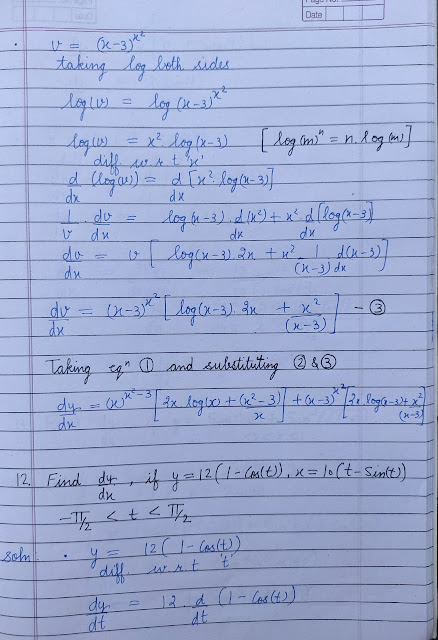 Page No.
Date
v = (x-3)^x²
taking log both sides
log(v) = log (x-3)^x²
log(v) = x². log(x-3) [log(m)ⁿ = n. log(m)]
diff w.r.t 'x'
d/dx (log(v)) = d/dx [x². log(x-3)]
1/v . dv/dx = log(x-3). d/dx (x²) + x². d/dx [log(x-3)]
dv/dx = v [ log(x-3). 2x + x². 1/(x-3) d/dx (x-3) ]
dv/dx = (x-3)^x² [ log(x-3). 2x + x²/(x-3) ] - ③
Taking eqⁿ ① and substituting ② & ③
dy/dx = (x)^x²-3 [ 2x log(x) + (x²-3)/x ] + (x-3)^x² [ 2x. log(x-3) + x²/(x-3) ]
12. Find dy/dx, if y = 12(1-Cos(t)), x = 10(t-Sin(t))
-π/2 < t < π/2
Soln. • y = 12(1-Cos(t))
diff w.r.t 't'
dy/dt = 12. d/dt (1-Cos(t))